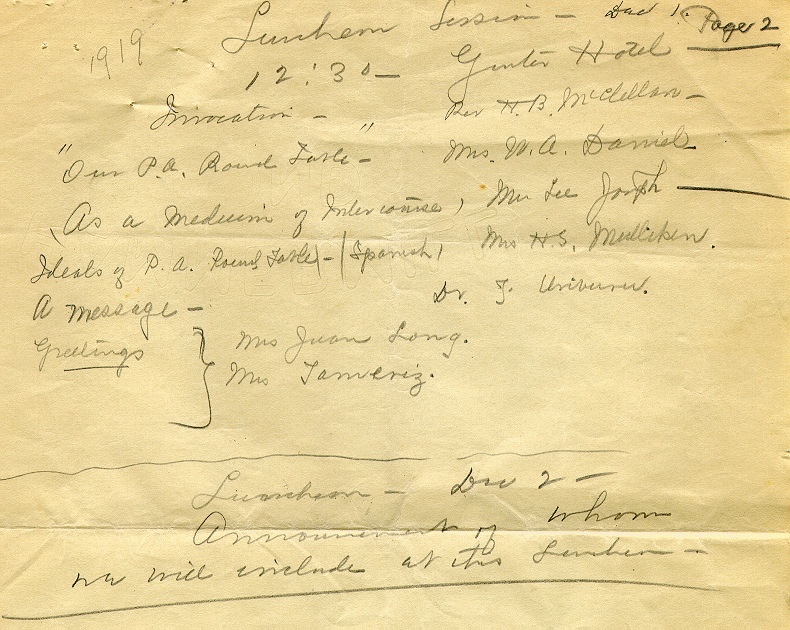 Page 2
1919
Luncheon Session - Dec 1.
12:30 - Gunter Hotel
Invocation - Rev H. B. McClellan -
"Our P.A. Round Table" - Mrs. W. A. Daniel
As a Medium of Intercourse, Mrs Lee Joseph
Ideals of P. A. Round Table - (Spanish) Mrs H. S. Mulliken.
A message - Dr. F.
Greetings } Mrs Juan Long.
Mrs Tameriz.
Luncheon - Dec 2 -
Announcement of whom
we will include at this Luncheon -